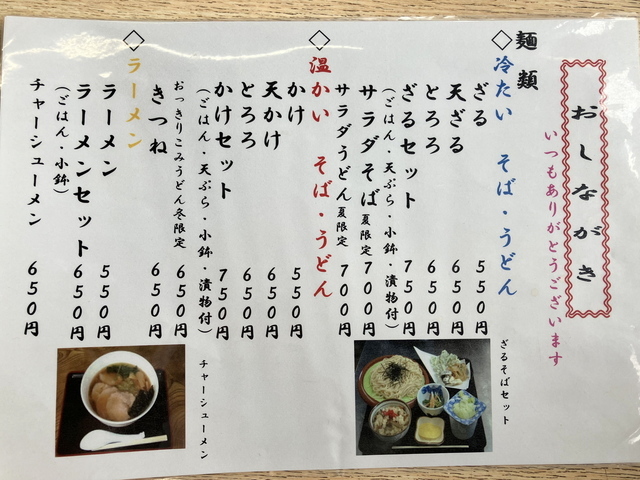 おしながき
いつもありがとうございます
麺類
◇冷たい そば・うどん
ざる 550円
天ざる 650円
とろろ 650円
ざるセット 750円
(ごはん・天ぷら・小鉢・漬物付)
サラダそば夏限定 700円
サラダうどん夏限定 700円
ざるそばセット
◇温かい そば・うどん
かけ 550円
天かけ 650円
とろろ 650円
かけセット 750円
(ごはん・天ぷら・小鉢・漬物付)
おっきりこみうどん冬限定 650円
きつね 650円
チャーシューメン
◇ラーメン
ラーメン 550円
ラーメンセット 650円
(ごはん・小鉢)
チャーシューメン 650円